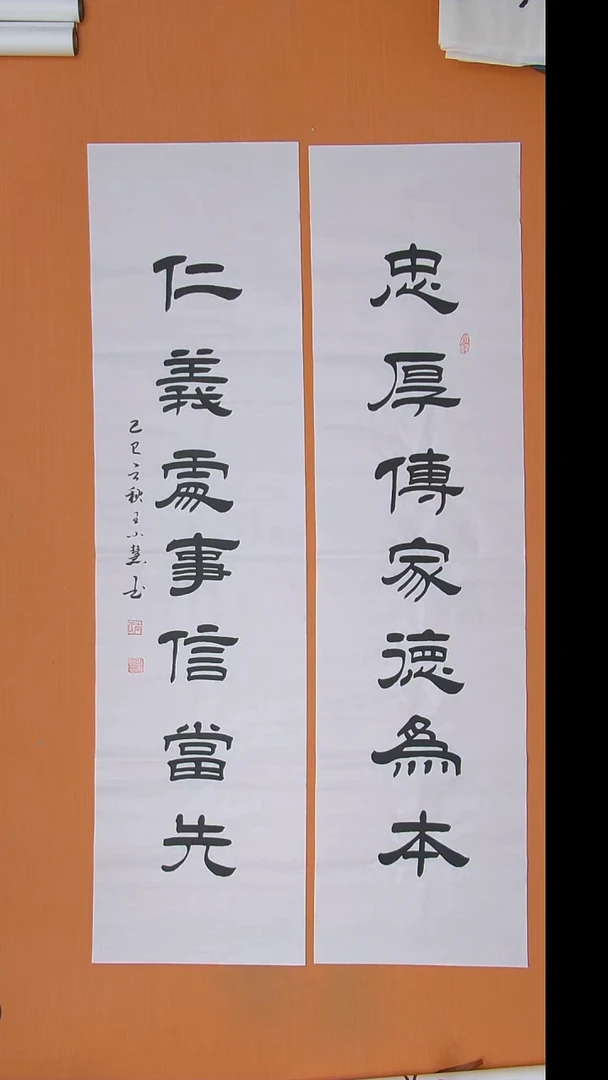 忠厚傳家德為本
仁義處事信當先
己巳立秋王小慧书